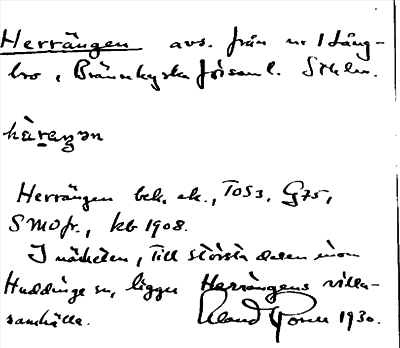 Herrängen avs. från nr 1 Lång-
bro, Brännkyrka församl. Sthlm.
hæ̀raŋən
Herrängen bek. ek., TOS3, G75,
SMOfr., kb 1908.
I närheten, till största delen inom
Huddinge sn, ligger Herrängens villa-
samhälle. 1930.